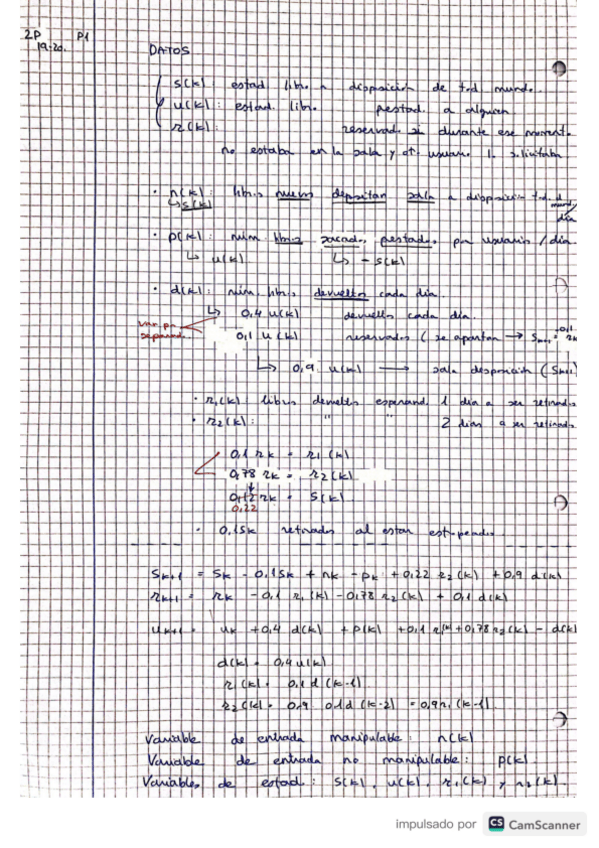 2P P1
19-20.
DATOS
s(k): estad libr a disposición de tod mundo.
u(k): estad. libr. prestad. a alguien
r(k): reservad. si durante ese moment.
no estaba en la sala y ot. usuario l. solicitaba
· n(k): libros nuevos depositan sala a disposición tod. d
↳ s(k) mund/
día
· p(k): núm libros sacados prestados por usuario / día.
↳ u(k) ↳ - s(k)
· d(k): núm. libros devueltos cada día.
↳ 0,4 u(k) devuelto cada día.
0,1 u(k) reservados (se apartan →
↳ 0,9 u(k) → sala disposición (Sk+1)
· r1(k) libros devueltos esperand. 1 día a ser retirados
· r2(k): " " 2 días a ser retirados
0,1 rk = r1(k)
0,78 rk = r2(k)
+
0,12 rk = s(k)
0,22
· 0,1sk retirados al estar estropeados
Sk+1 = Sk - 0,1sk + nk - pk + 0,22 r2(k) + 0,9 d(k)
rk+1 = rk - 0,1 r1(k) - 0,78 r2(k) + 0,1 d(k)
uk+1 = uk + 0,4 d(k) + p(k) + 0,1 r1(k) + 0,78 r2(k) - d(k)
d(k) = 0,4 u(k)
r1(k) = 0,1 d(k-1)
r2(k) = 0,9 · 0,1d(k-2) = 0,9r1(k-1)
Variable de entrada manipulable: n(k)
Variable de entrada no manipulable: p(k)
Variables de estad: s(k), u(k), r1(k) y r2(k).
impulsado por CS CamScanner